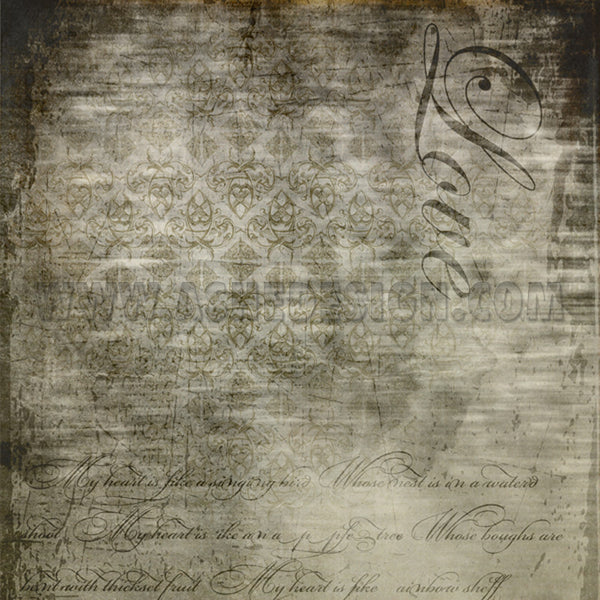 Love
WWW.ASKIDESIGN.COM
My heart is like a singing bird Whose nest is in a water'd
shoot My heart is like an a p ple-tree Whose boughs are
bent with thickset fruit My heart is like ainbow shell